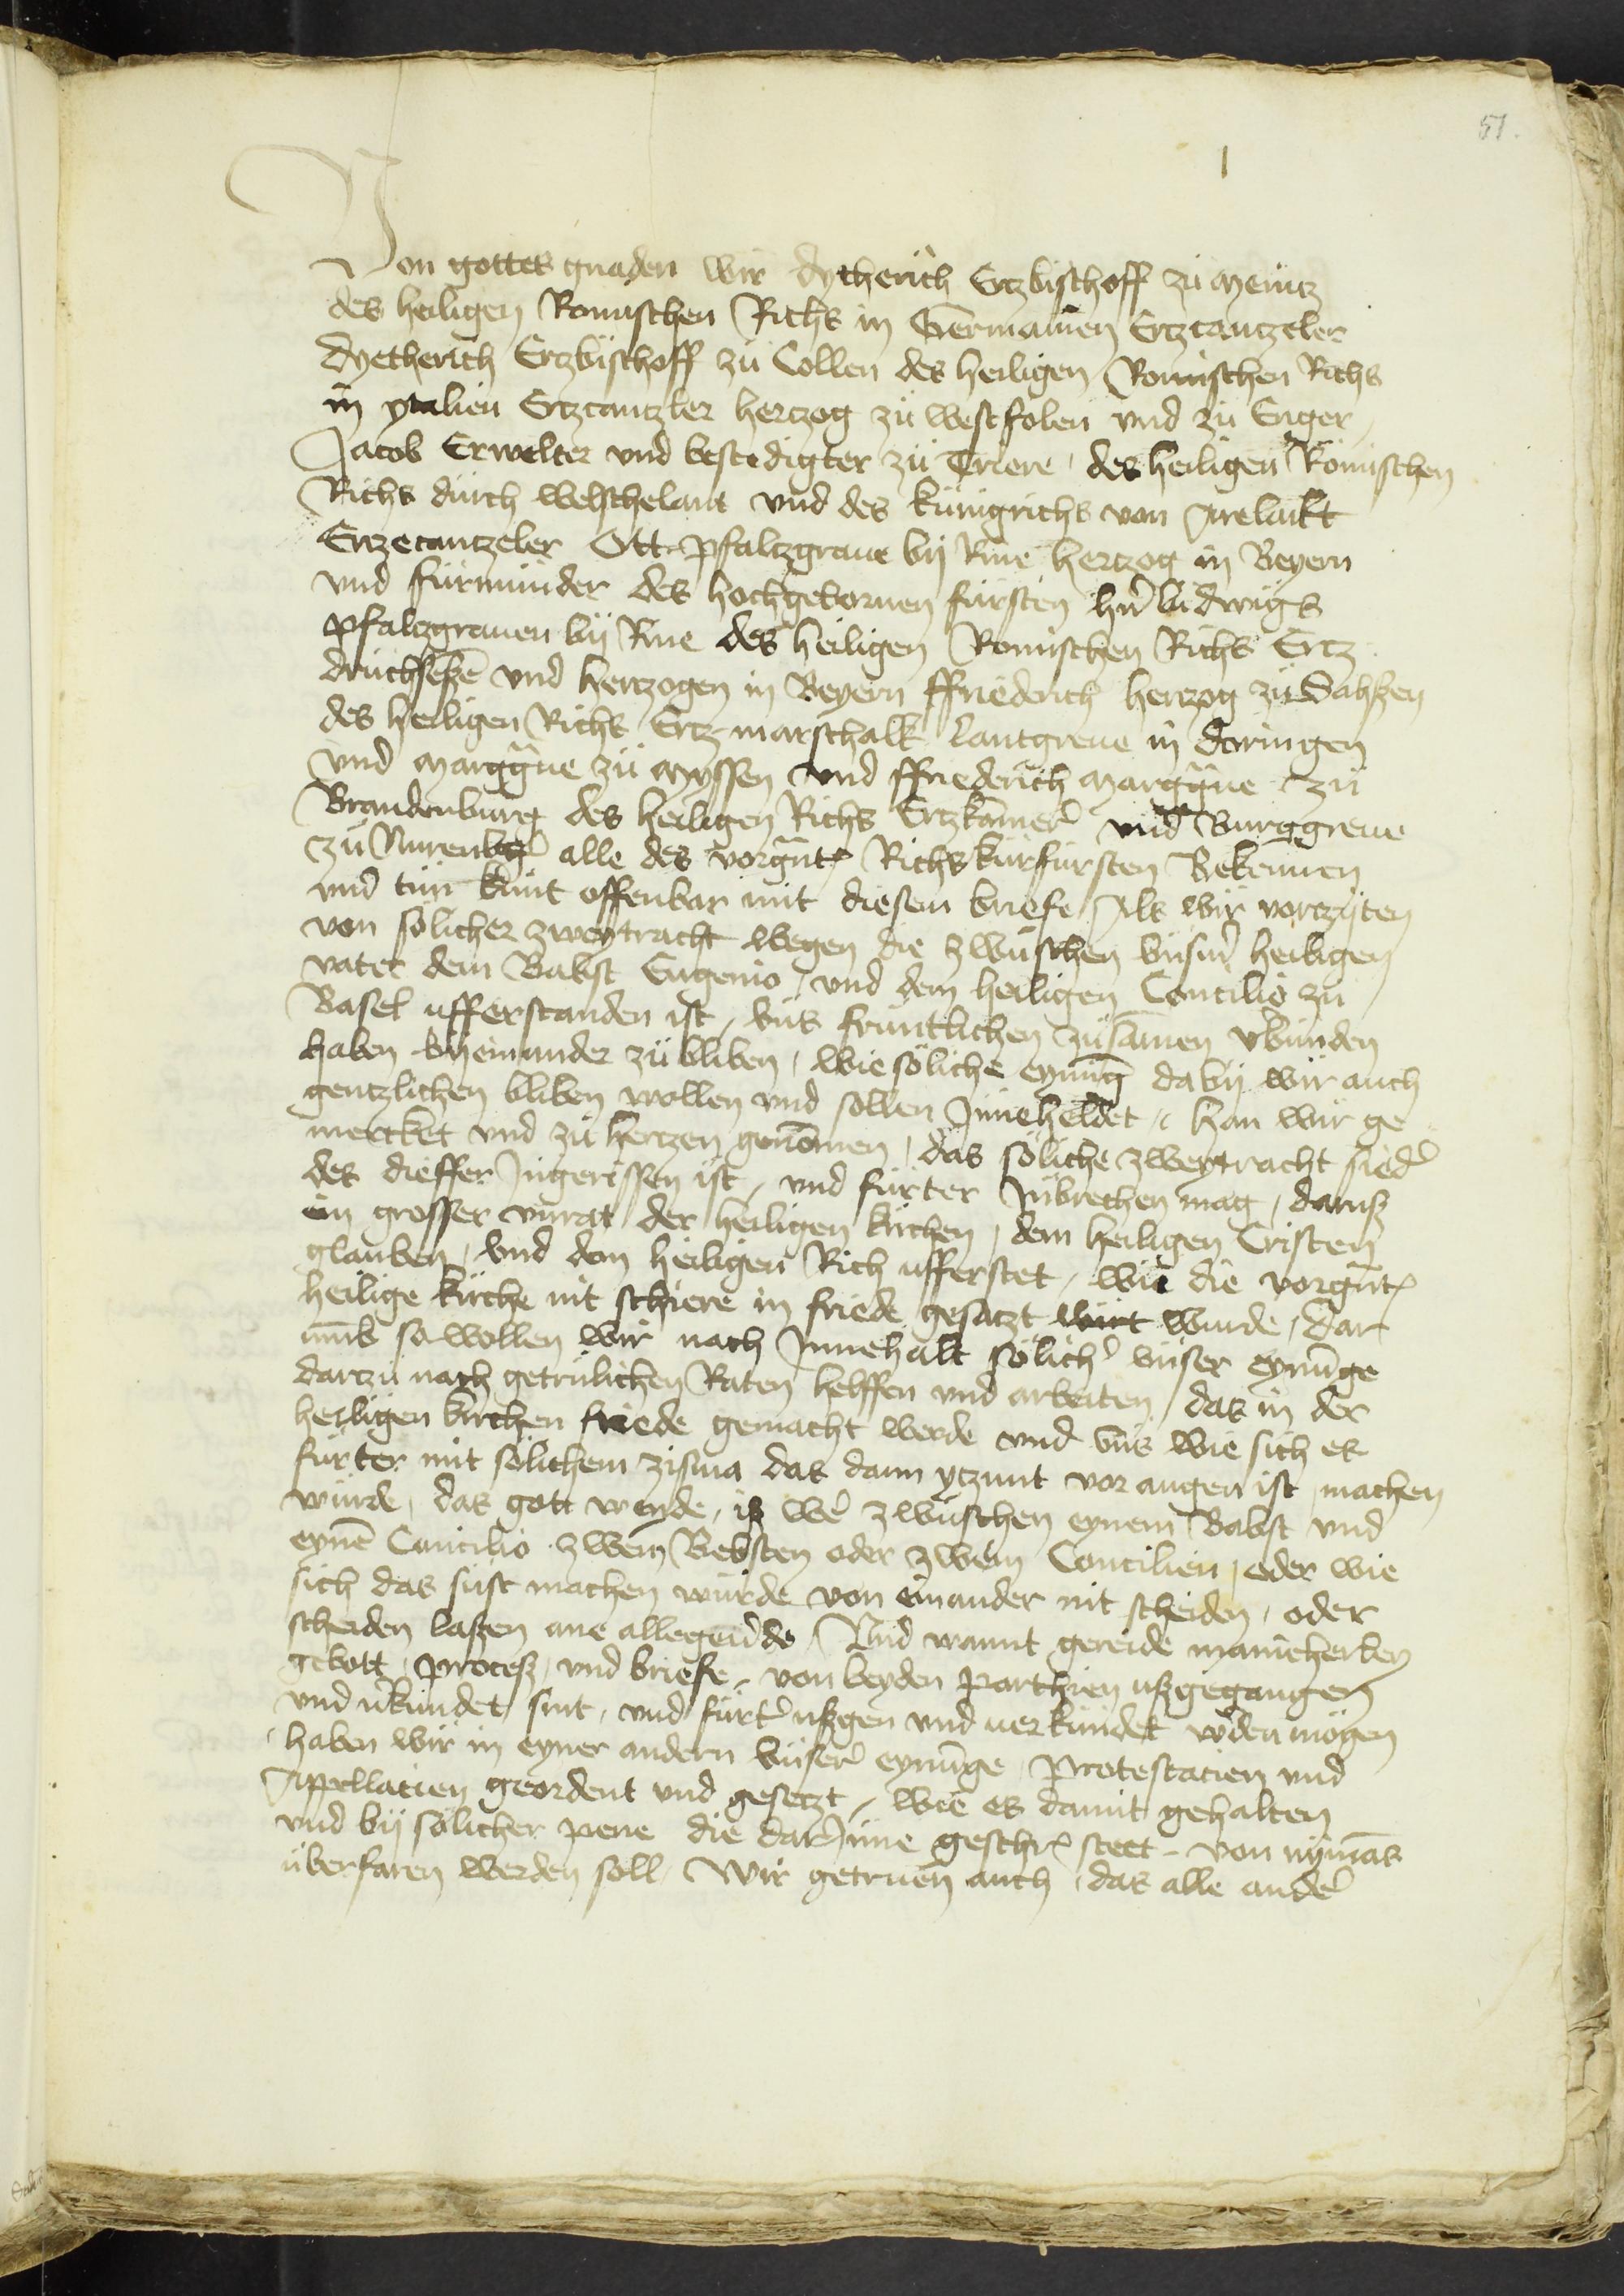 51.
Von gottes gnaden wir dytherich Ertzbischoff zü Mentz
des heiligen Romischen Richs in Germanien Ertzcantzeler
dyetherich Ertzbischoff zü Collen des heiligen Romischen Richs
in ytalien Ertzcantzler hertzog zü westfolen vnd zü Enger
Jacob Erwelter vnd bestedigter zü Triere des heiligen Römischen
Richs dürch welschelant vnd des künigrichs von
Ertzecantzeler Ott pfaltzgraue bij Rine hertzog in Beyern
vnd fürmünder des hochgebornen fürsten hn̄ ludwigs
pfaltzgrauen bij Rine des heiligen Romischen Richs Ertz
drüchseße vnd hertzogen in Beyern ffriederich hertzog zü Sahßen
des heiligen Richs Ertzmarschalk lantgreue in doringen
vnd marggue zü myssen vnd ffriederich marggue zü
Brandenbürg des heiligen Richs Ertzkamer̄ vnd Burggreue
zü Nurenbḡ alle des vorgn̄t Richs kürfürsten Bekennen
vnd tün künt offenbar mit diesem briefe Als wir vorzyten
von sölicher zweytracht wegen die zwüschen vnsm̄ heiligen
vater dem Babst Eugenio vnd dem heiligen Concilio zü
Basel ufferstanden ist, vns früntlichen züsamen v̄bünden
haben bij einander zü bliben, wie söliche eynūg dabij wir auch
gentzlichen bliben wollen vnd sollen Jnneheldet, han wir ge
mercket vnd zü hertzen genōmen, das söliche zweytracht sied̄
des dieffer Jngerissen ist, vnd fürter Jnbrechen mag, daruß
ein grosser vnrat der heiligen kirchen, dem heiligen Cristen
glauben, vnd dem heiligen Rich ufferstet, wie die vorgn̄t
heilige kirche nit schiere in friede gesatzt wirt würde, dar
ūmb so wollen wir nach Jnnehalt sölich̄ vnser eynūge
dartzü nach getrülichen Raten helffen vnd arbeiten, das in der
heiligen kirchen friede gemacht werde vnd vns wie sich es
fürter mit sölichem zisma das dann ytzunt vor augen ist, machen
würde, das gott wende, iß wē zwüschen eynem Babst vnd
eynē Concilio zwein Bebsten oder zwein Concilien, oder wie
sich das süst machen würde von einander nit scheiden, oder
scheiden laßen ane allegeūde Vnd wannt gereide manicherley
gebott, proceß, vnd briefe, von beyden Parthien ußgegangen
vnd v̄kündet sint, vnd fürt̄ ußgen vnd uerkündet w̄den mögen
haben wir in eyner andern vnser̄ eynūge Protestacien vnd
Appellacien geordent vnd gesetzt, wie es damit gehalten
vnd bij sölicher pene die dar Jnne geschr̄ steet von nymās
überfaren werden soll Wir getruen auch, das alle ande̅